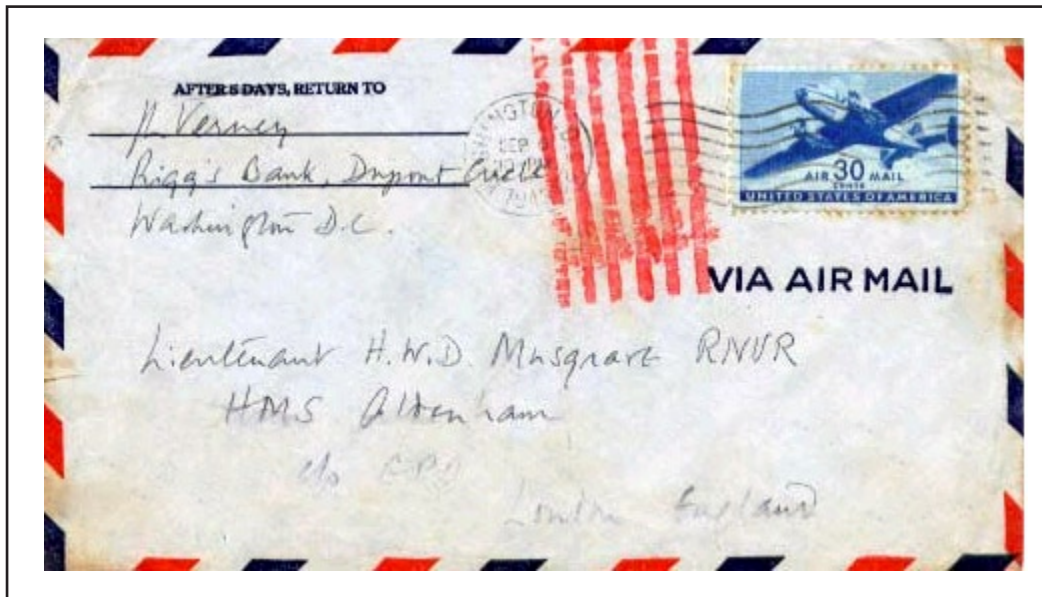 AFTER 5 DAYS, RETURN TO
Verney
Riggs Bank, Dupont Circle
Washington D.C.
WASHINGTON
SEP
AIR 30 MAIL
CENTS
UNITED STATES OF AMERICA
VIA AIR MAIL
Lieutenant H.W.D. Musgrave RNVR
HMS Aldenham
c/o GPO
London England